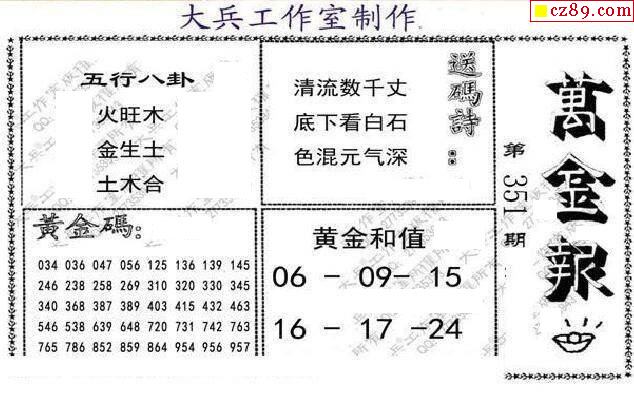 大兵工作室制作
cz89.com
五行八卦
火旺木
金生土
土木合
送碼詩：
清流数千丈
底下看白石
色混元气深
萬金報
第351期
黃金碼：
034 036 047 056 125 136 139 145
246 238 258 269 310 320 330 345
340 368 387 389 403 415 432 463
546 538 639 648 720 731 742 763
765 786 852 859 864 954 956 957
黄金和值
06 - 09- 15
16 - 17 -24